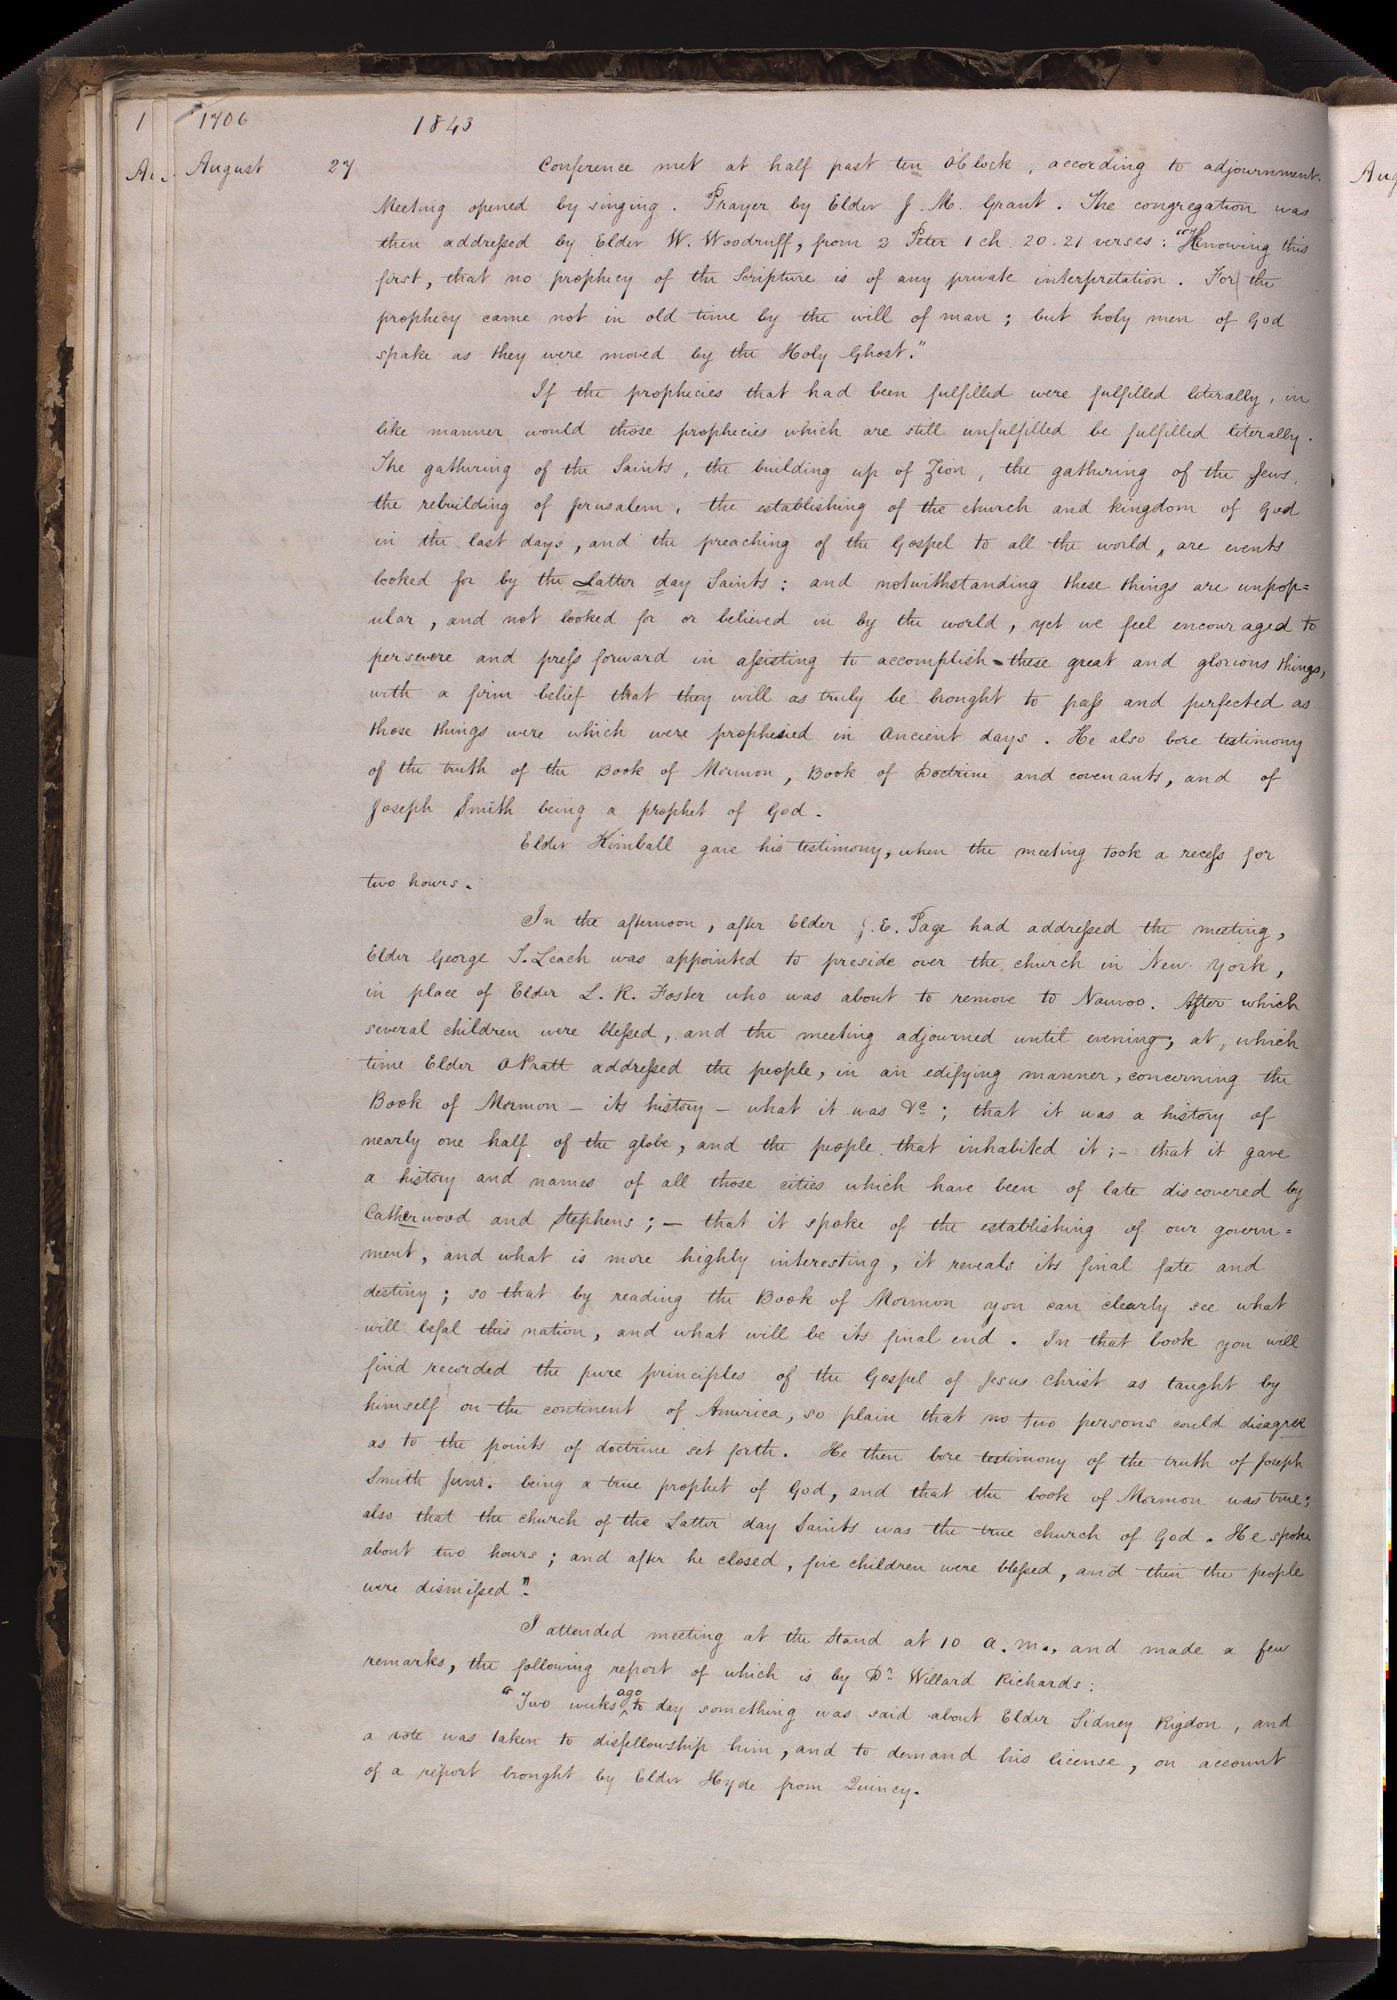 1706 1843
August 27 Conference met at half past ten O'Clock, according to adjournment.
Meeting opened by singing. Prayer by Elder J. M. Grant. The congregation was
then addressed by Elder W. Woodruff, from 2 Peter 1 ch. 20. 21 verses: "Knowing this
first, that no prophecy of the Scripture is of any private interpretation. For the
prophecy came not in old time by the will of man; but holy men of God
spake as they were moved by the Holy Ghost."
If the prophecies that had been fulfilled were fulfilled literally, in
like manner would those prophecies which are still unfulfilled be fulfilled literally.
The gathering of the Saints, the building up of Zion, the gathering of the Jews,
the rebuilding of Jerusalem, the establishing of the church and kingdom of God
in the last days, and the preaching of the Gospel to all the world, are events
looked for by the Latter day Saints: and notwithstanding these things are unpop=
ular, and not looked for or believed in by the world, yet we feel encouraged to
persevere and press forward in assisting to accomplish these great and glorious things,
with a firm belief that they will as truly be brought to pass and perfected as
those things were which were prophesied in Ancient days. He also bore testimony
of the truth of the Book of Mormon, Book of Doctrine and covenants, and of
Joseph Smith being a prophet of God.
Elder Kimball gave his testimony, when the meeting took a recess for
two hours.
In the afternoon, after Elder J. E. Page had addressed the meeting,
Elder George T. Leach was appointed to preside over the church in New York,
in place of Elder L. R. Foster who was about to remove to Nauvoo. After which
several children were blessed, and the meeting adjourned until evening; at, which
time Elder O Pratt addressed the people, in an edifying manner, concerning the
Book of Mormon — its history — what it was &c.; that it was a history of
nearly one half of the globe, and the people that inhabited it; — that it gave
a history and names of all those cities which have been of late discovered by
Catherwood and Stephens; — that it spoke of the establishing of our govern=
ment, and what is more highly interesting, it reveals its final fate and
destiny; so that by reading the Book of Mormon you can clearly see what
will befal this nation, and what will be its final end. In that book you will
find recorded the pure principles of the Gospel of Jesus Christ as taught by
himself on the continent of America, so plain that no two persons could disagree
as to the points of doctrine set forth. He then bore testimony of the truth of Joseph
Smith Junr. being a true prophet of God, and that the book of Mormon was true;
also that the church of the Latter day Saints was the true church of God. He spoke
about two hours; and after he closed, five children were blessed, and then the people
were dismissed".
I attended meeting at the Stand at 10 a.m., and made a few
remarks, the following report of which is by Dr. Willard Richards:
"Two weeks ago to day something was said about Elder Sidney Rigdon, and
a vote was taken to disfellowship him, and to demand his license, on account
of a report brought by Elder Hyde from Quincy.